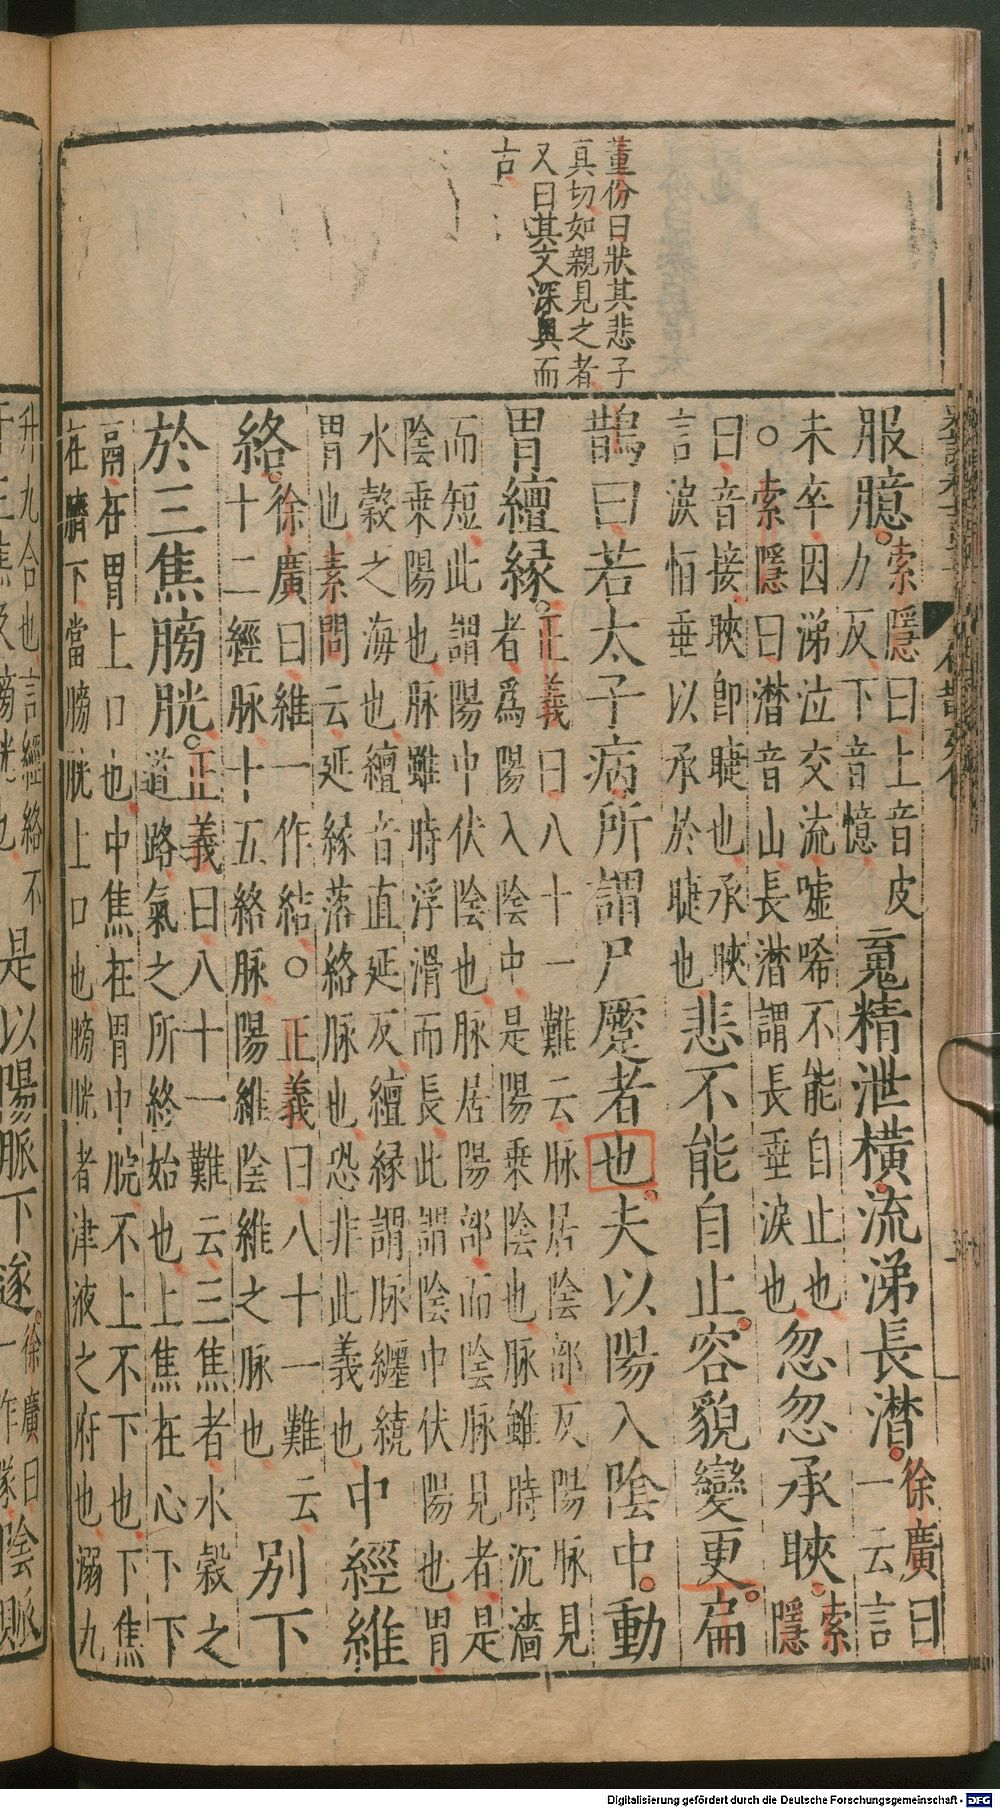 董份曰狀其悲子
真切如親見之者
又曰其文深奥而
古
服臆。索隱曰上音皮
力反下音憶
䰟精泄横流涕長潸。徐廣曰
一云言
未卒因涕泣交流嘘唏不能自止也
○索隱曰潸音山長潸謂長垂淚也
忽忽承䀹。索
隱
曰音接䀹即睫也承䀹
言淚恒垂以承於睫也
悲不能自止。容貌變更。扁
鵲曰若太子病所謂尸蹷者也。夫以陽入陰中。動
胃繵緣。正義曰八十一難云脉居陰部反陽脉見
者爲陽入陰中是陽乗陰也脉雖時沉濇
而短此謂陽中伏陰也脉居陽部而陰脉見者是
陰乗陽也脉雖時浮滑而長此謂陰中伏陽也胃
水穀之海也繵音直延反繵緣謂脉纒繞
胃也素問云延緣落絡脉也恐非此義也
中經維
絡。徐廣曰維一作結○正義曰八十一難云
十二經脉十五絡脉陽維陰維之脉也
别下
於三焦膀胱。正義曰八十一難云三焦者水穀之
道路氣之所終始也上焦在心下下
鬲在胃上口也中焦在胃中脘不上不下也下焦
在臍下當膀胱上口也膀胱者津液之府也溺九
升九合也言經絡不
于三焦及膀胱也
是以陽脈下遂。徐廣曰
一作隊
陰脈
Digitalisierung gefördert durch die Deutsche Forschungsgemeinschaft - DFG